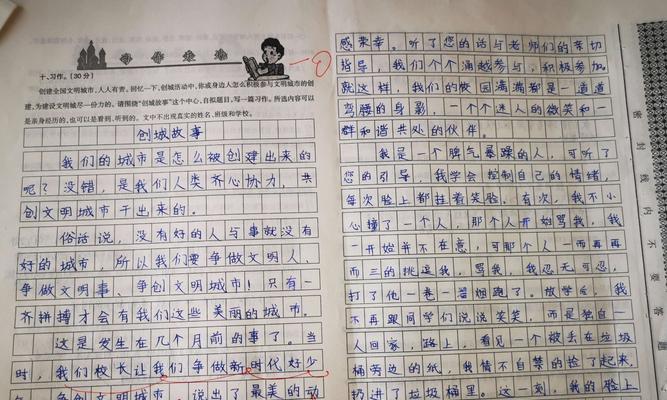 十、习作。(30分)
创建全国文明城市，人人有责。回忆一下，创城活动中，你或身边人怎么积极参与文明城市的创
建，为建设文明城尽一份力的。请围绕“创城故事”这个中心，自拟题目，写一篇习作。所选内容可以
是亲身经历的，也可以是看到、听到的。文中不出现真实的姓名、班级和学校。
创城故事
我们的城市是怎么被创建出来的
呢？没错，是我们人类齐心协力，共
创文明城市干出来的。
俗话说，没有好的人与事就没有
好的城市，所以我们要争做文明人、
争做文明事、争创文明城市！只有一
齐拼搏才会有我们这些美丽的城市。
这是发生在几个月前的事了。当
时，我们校长让我们争做新时代好少
争创文明城市，说出了最美的动
感荣幸。听了您的话与老师们的亲切
指导，我们个个涌越参与，积极参加。
就这样，我们的校园满满都是一道道
弯腰的身影，一个个迷人的微笑和一
群和谐共处的伙伴。
我是一个脾气暴躁的人，可听了
您的引导，我学会控制自己的情绪，
每次脸上都挂着笑脸。有次，我不小
心撞了一个人，那个人开始骂我，我
一开始并不在意，可那个人一而再再
而三的挑逗我，骂我，我忍无可忍，
打了他一卷一着烟跑了。放学后，我
不再跟同学们说说笑笑，而是独自一
人回家，路上，看见一个被丢在垃圾
桶旁边的纸，我情不自禁的捡了起来，
扔进了垃圾桶里。这一刻，我的脸上
密封线内不要答题